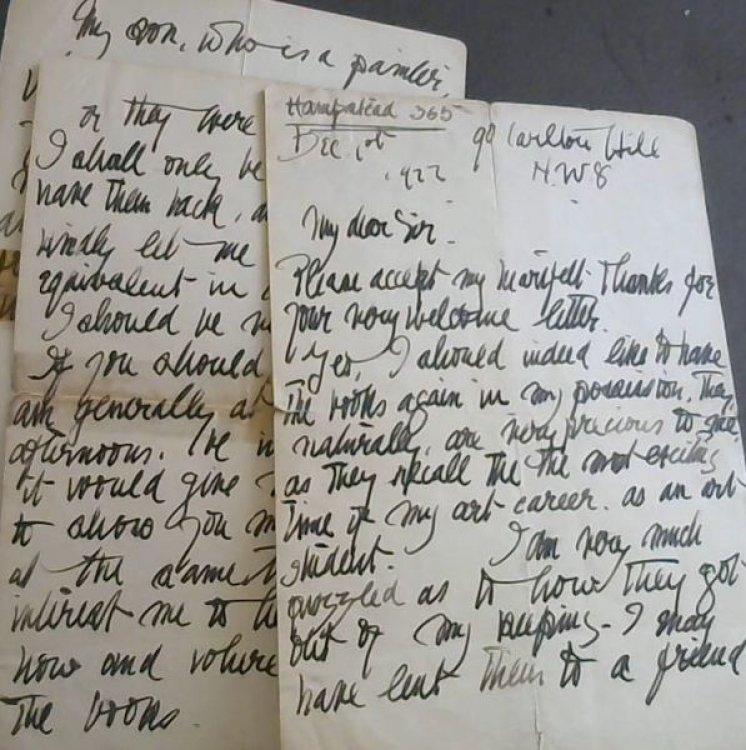 My son, who is a painter,
or they were
I shall only be
have them back,
kindly let me
equivalent in
I should be
If you should
am generally at
afternoons.
it would give
to show you
at the same
interest me to
how and where
the books
Hampstead 365
Dec 1st
1922
90 Carlton Hill
N.W 8
My dear Sir.
Please accept my heartfelt thanks for
your very welcome letter.
Yes, I should indeed like to have
the books again in my possession, They,
naturally, are very precious to me
as they recall the the most exciting
time of my art career. as an art
student. I am very much
puzzled as to how they got
out of my keeping - I may
have lent them to a friend